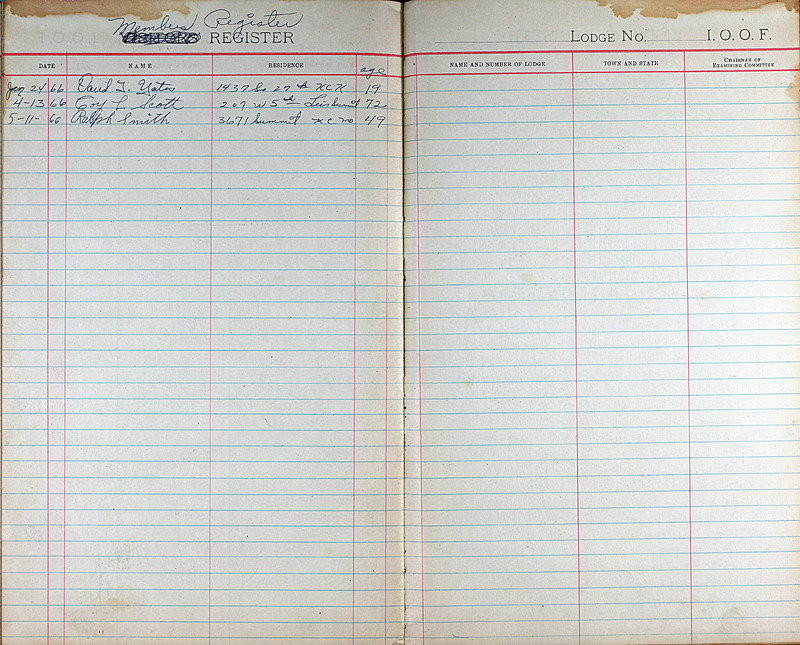 Members Register
VISITORS REGISTER
LODGE NO. I. O. O. F.
DATE NAME RESIDENCE age NAME AND NUMBER OF LODGE TOWN AND STATE CHAIRMAN OF EXAMINING COMMITTEE
Jan 24 66 David T. 1437 So 27 th KCK 19
4-13 66 L. Scott 207 W 5 th 72
5-11- 66 Ralph Smith 3671 Summit KC Mo 49